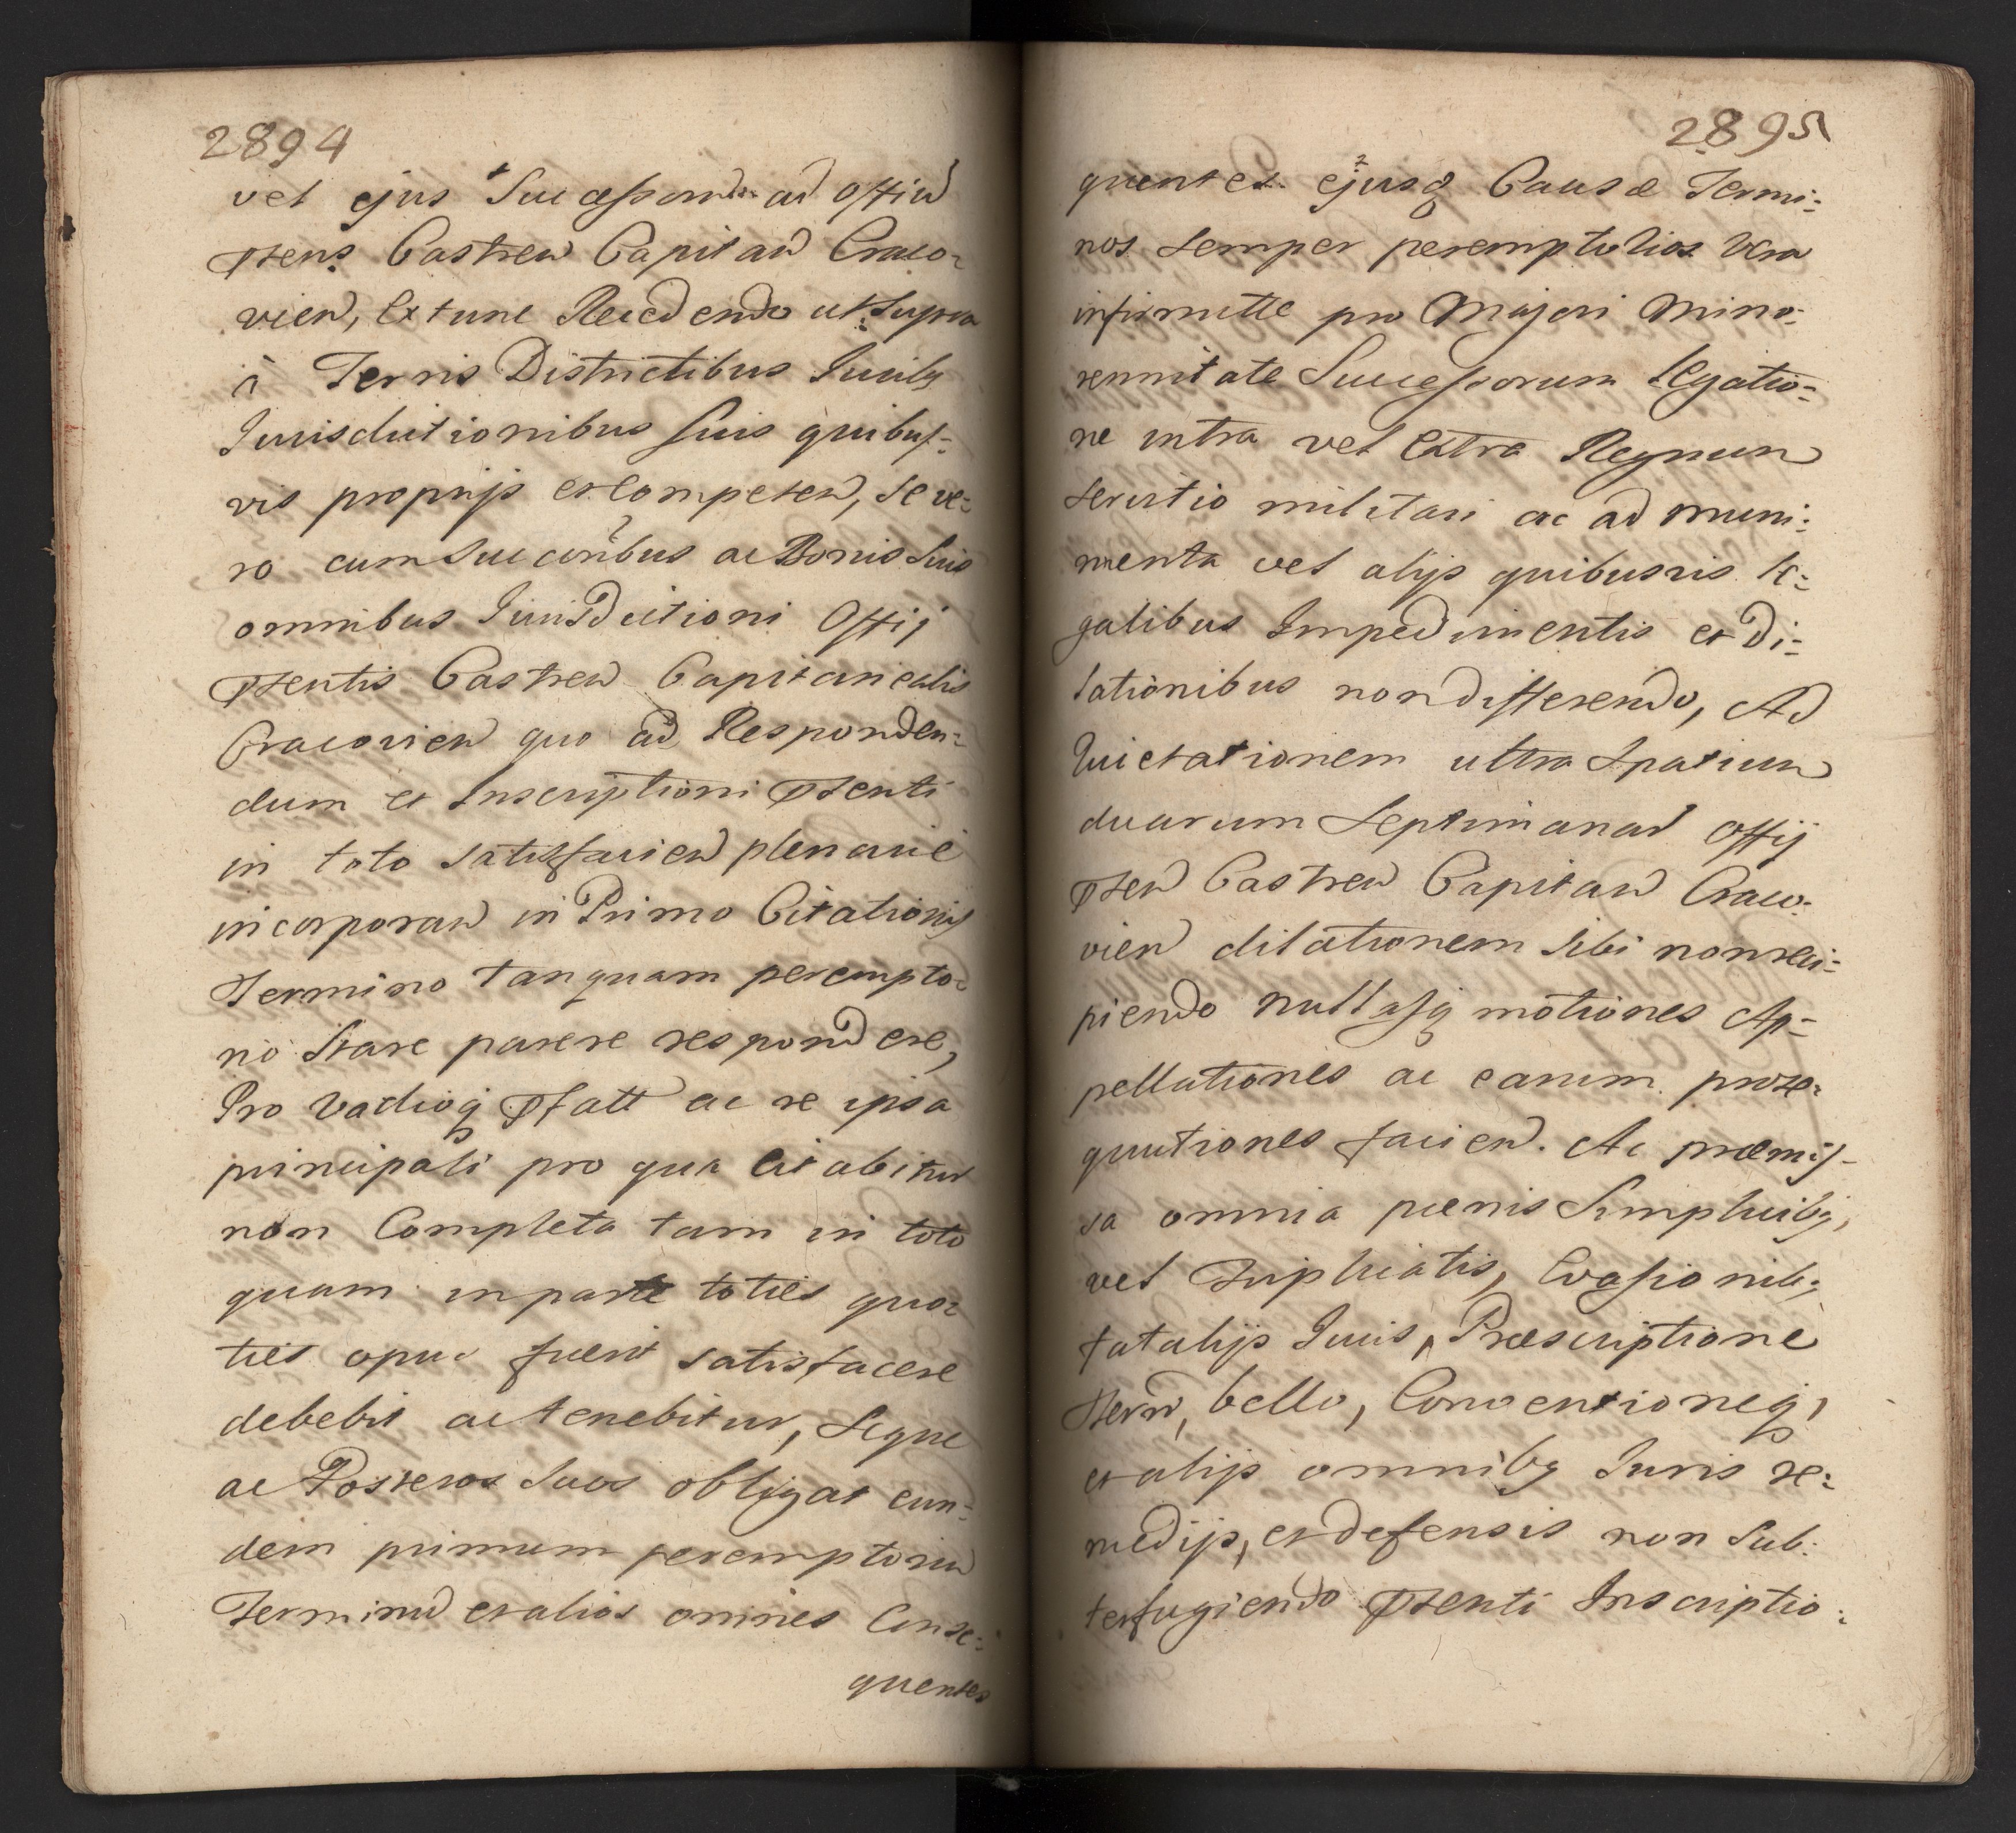 2894
vel ejus Successorum ad Offiū
Pntens Castren Capitan Craco-
vien, Ex tunc Recedendo ut supra
à Terris Districtibus Iuribq
Jurisdictionibus suis quibus-
vis proprijs et competen, se ve-
ro cum Succoribus ac Bonis suis
omnibus Jurisdictioni Offij
Pntentis Castren Capitanealis
Cracovien quo ad Responden-
dum et Inscriptioni Pntenti
in toto satisfacien plenarie
incorporan in Primo Citationis
Termino tanquam perempto-
rio Stare parere respondere,
Pro Vadioq Pfatt ac re ipsa
principali pro qua Citabitur
non Completa tam in toto
quam in parte toties quo-
ties opus fuerit satisfacere
debebit ac tenebitur, Seque
ac Posteros suos obligat eun-
dem primum peremptoriū
Terminū et alios omnes Conse-
quentes
2895
quentes ejusq Causæ Termi-
nos semper peremptorios Vera
infirmitte pro Majori Mino-
rennitate Successorum legatio-
ne intra vel Extra Regnum
servitio militari ac ad muni-
menta vel alijs quibusvis le-
galibus Impedimentis et Di-
lationibus non differendo, Ad
Quietationem ultra Spatium
duarum Septimanar Offij
Pnten Castren Capitan Craco-
vien dilationem sibi non reci-
piendo nullasq motiones Ap-
pellationes ac earum prose-
quutiones facien. Ac præmis-
sa omnia pœnis Simplicibq,
vel Triplicatis, Evasionibq
fatalijs Iuris, Præscriptione
Terrr, bello, Conventioneq,
et alijs omnibq Iuris re-
medijs, et defensis non Sub-
terfugiendo Pntenti Inscriptio-